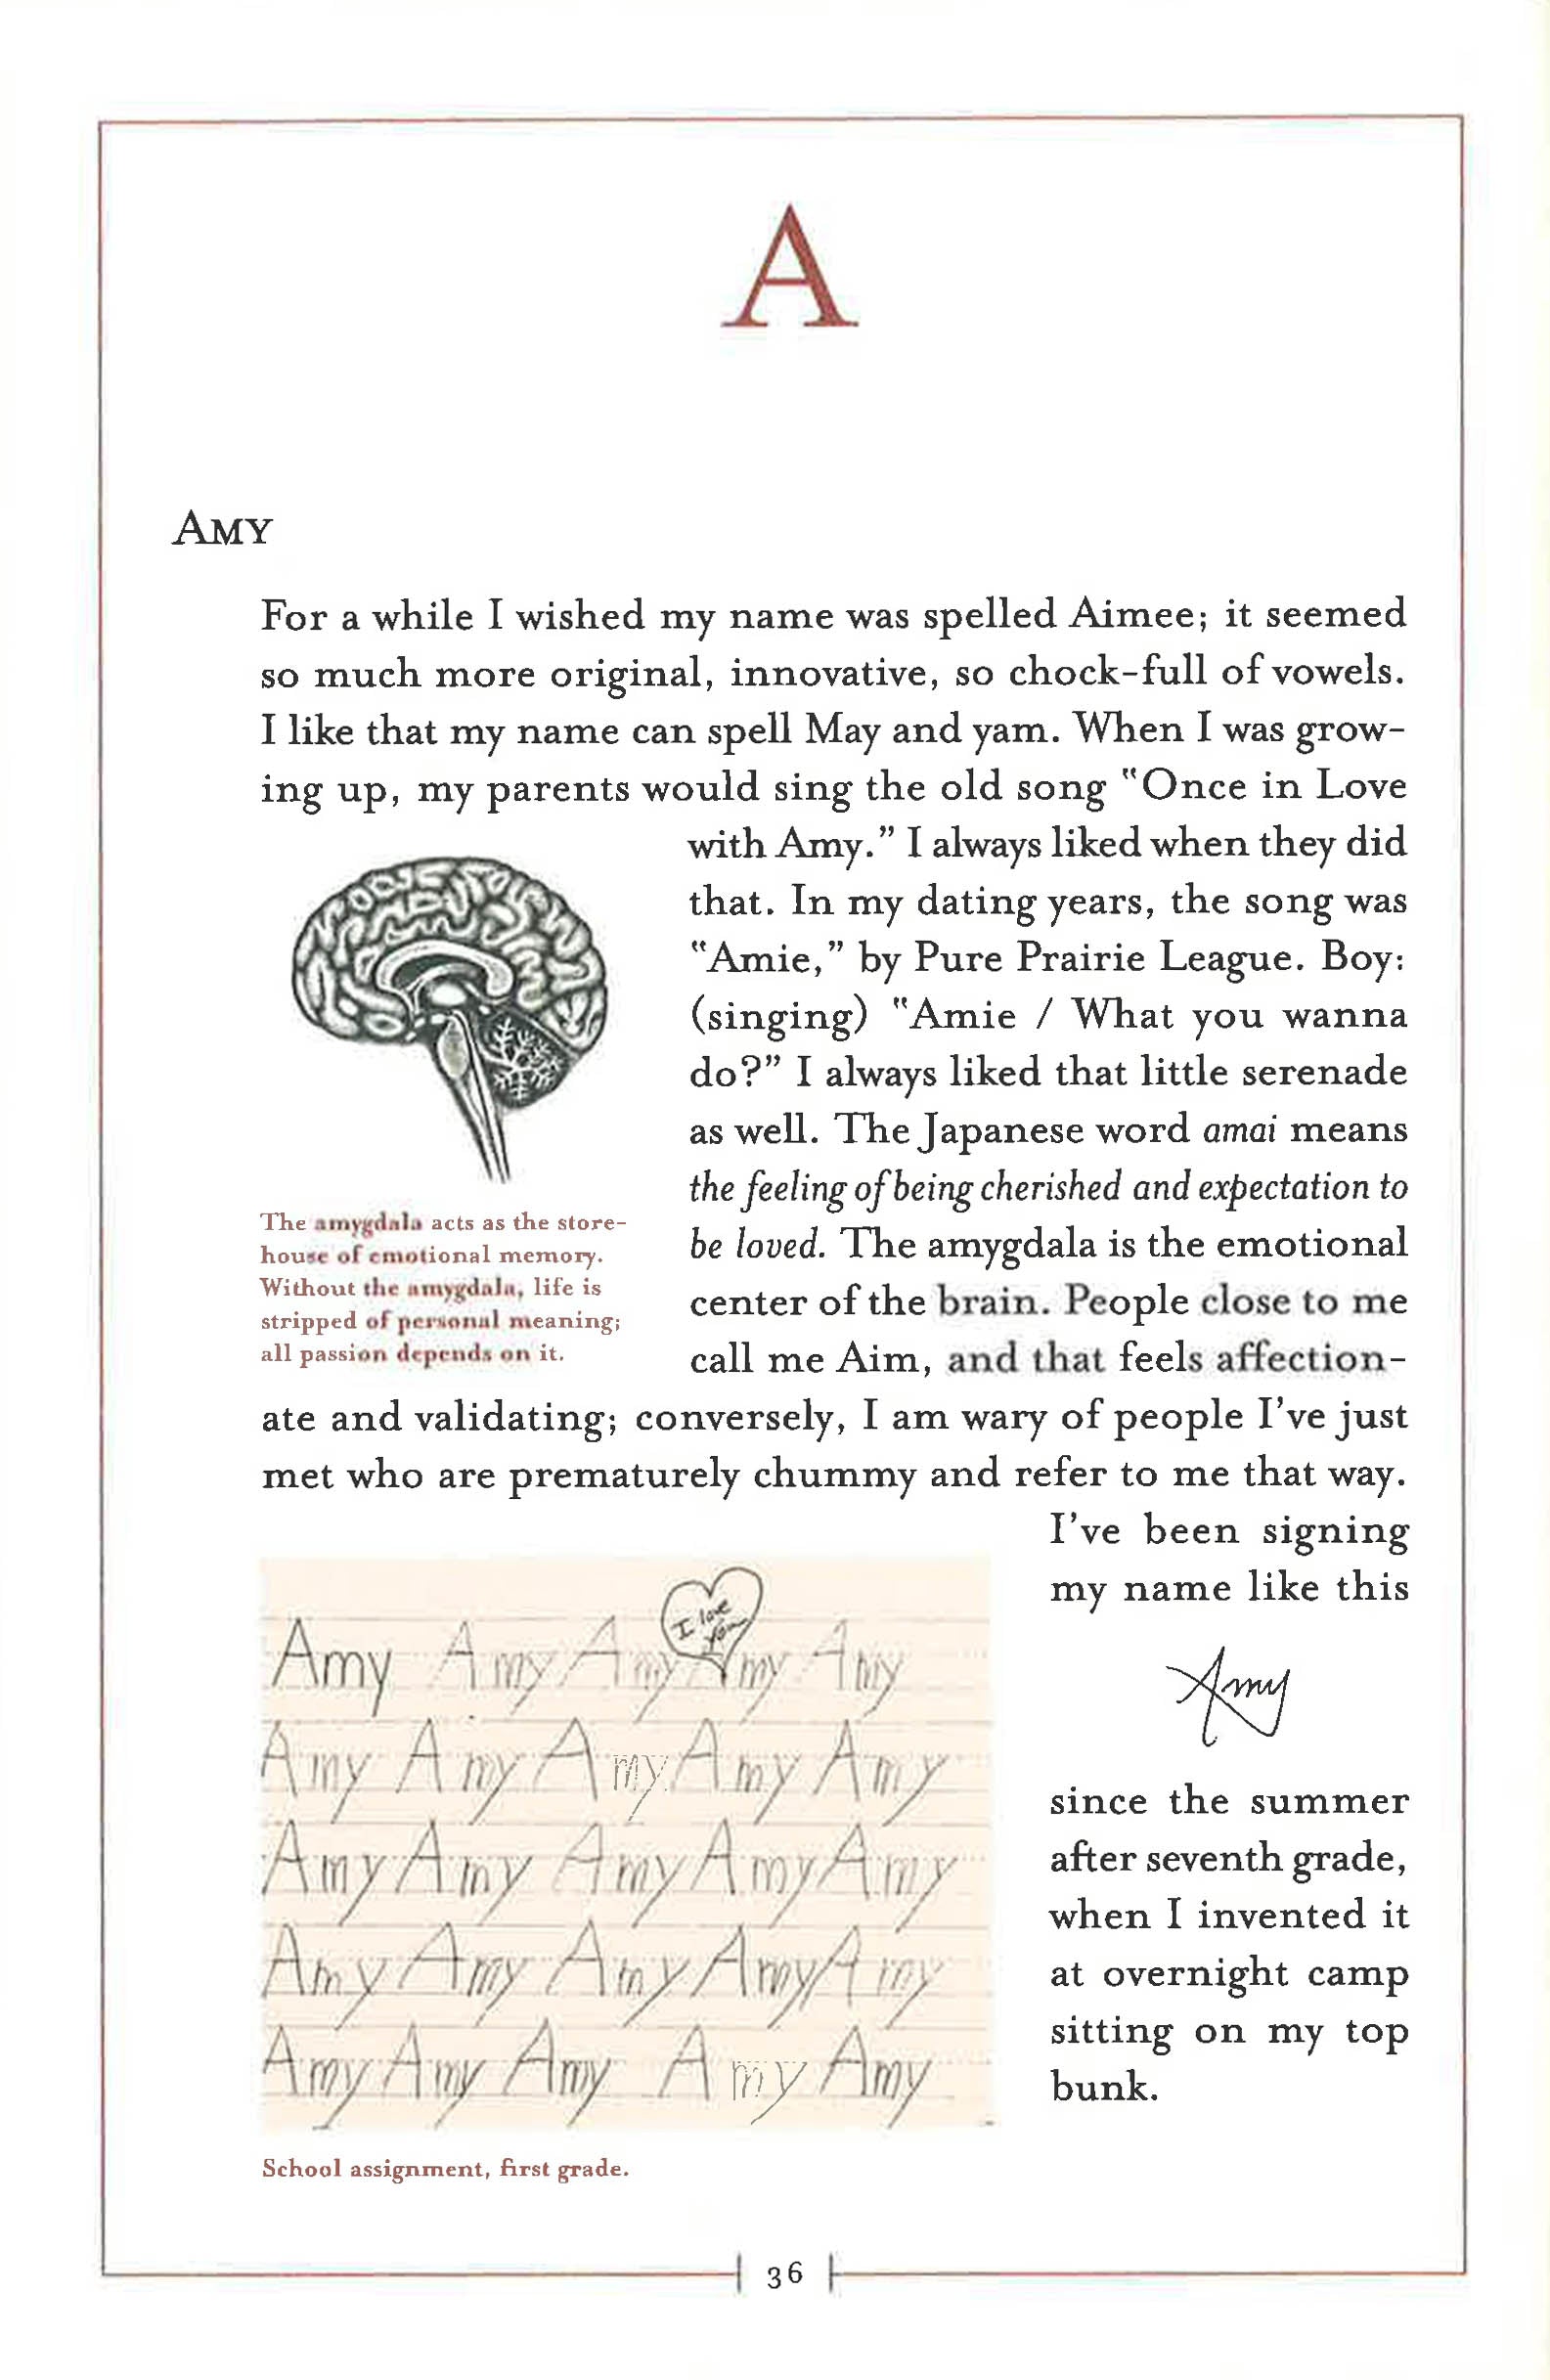 A
AMY
For a while I wished my name was spelled Aimee; it seemed
so much more original, innovative, so chock-full of vowels.
I like that my name can spell May and yam. When I was grow-
ing up, my parents would sing the old song "Once in Love
with Amy." I always liked when they did
that. In my dating years, the song was
"Amie," by Pure Prairie League. Boy:
(singing) "Amie / What you wanna
do?" I always liked that little serenade
as well. The Japanese word amai means
the feeling of being cherished and expectation to
be loved. The amygdala is the emotional
center of the brain. People close to me
call me Aim, and that feels affection-
ate and validating; conversely, I am wary of people I've just
met who are prematurely chummy and refer to me that way.
The amygdala acts as the store-
house of emotional memory.
Without the amygdala, life is
stripped of personal meaning;
all passion depends on it.
I've been signing
my name like this
Amy
since the summer
after seventh grade,
when I invented it
at overnight camp
sitting on my top
bunk.
I love
you
Amy Amy Amy Amy Amy
Amy Amy Amy Amy Amy
Amy Amy Amy Amy Amy
Amy Amy Amy Amy Amy
Amy Amy Amy Amy Amy
School assignment, first grade.
36